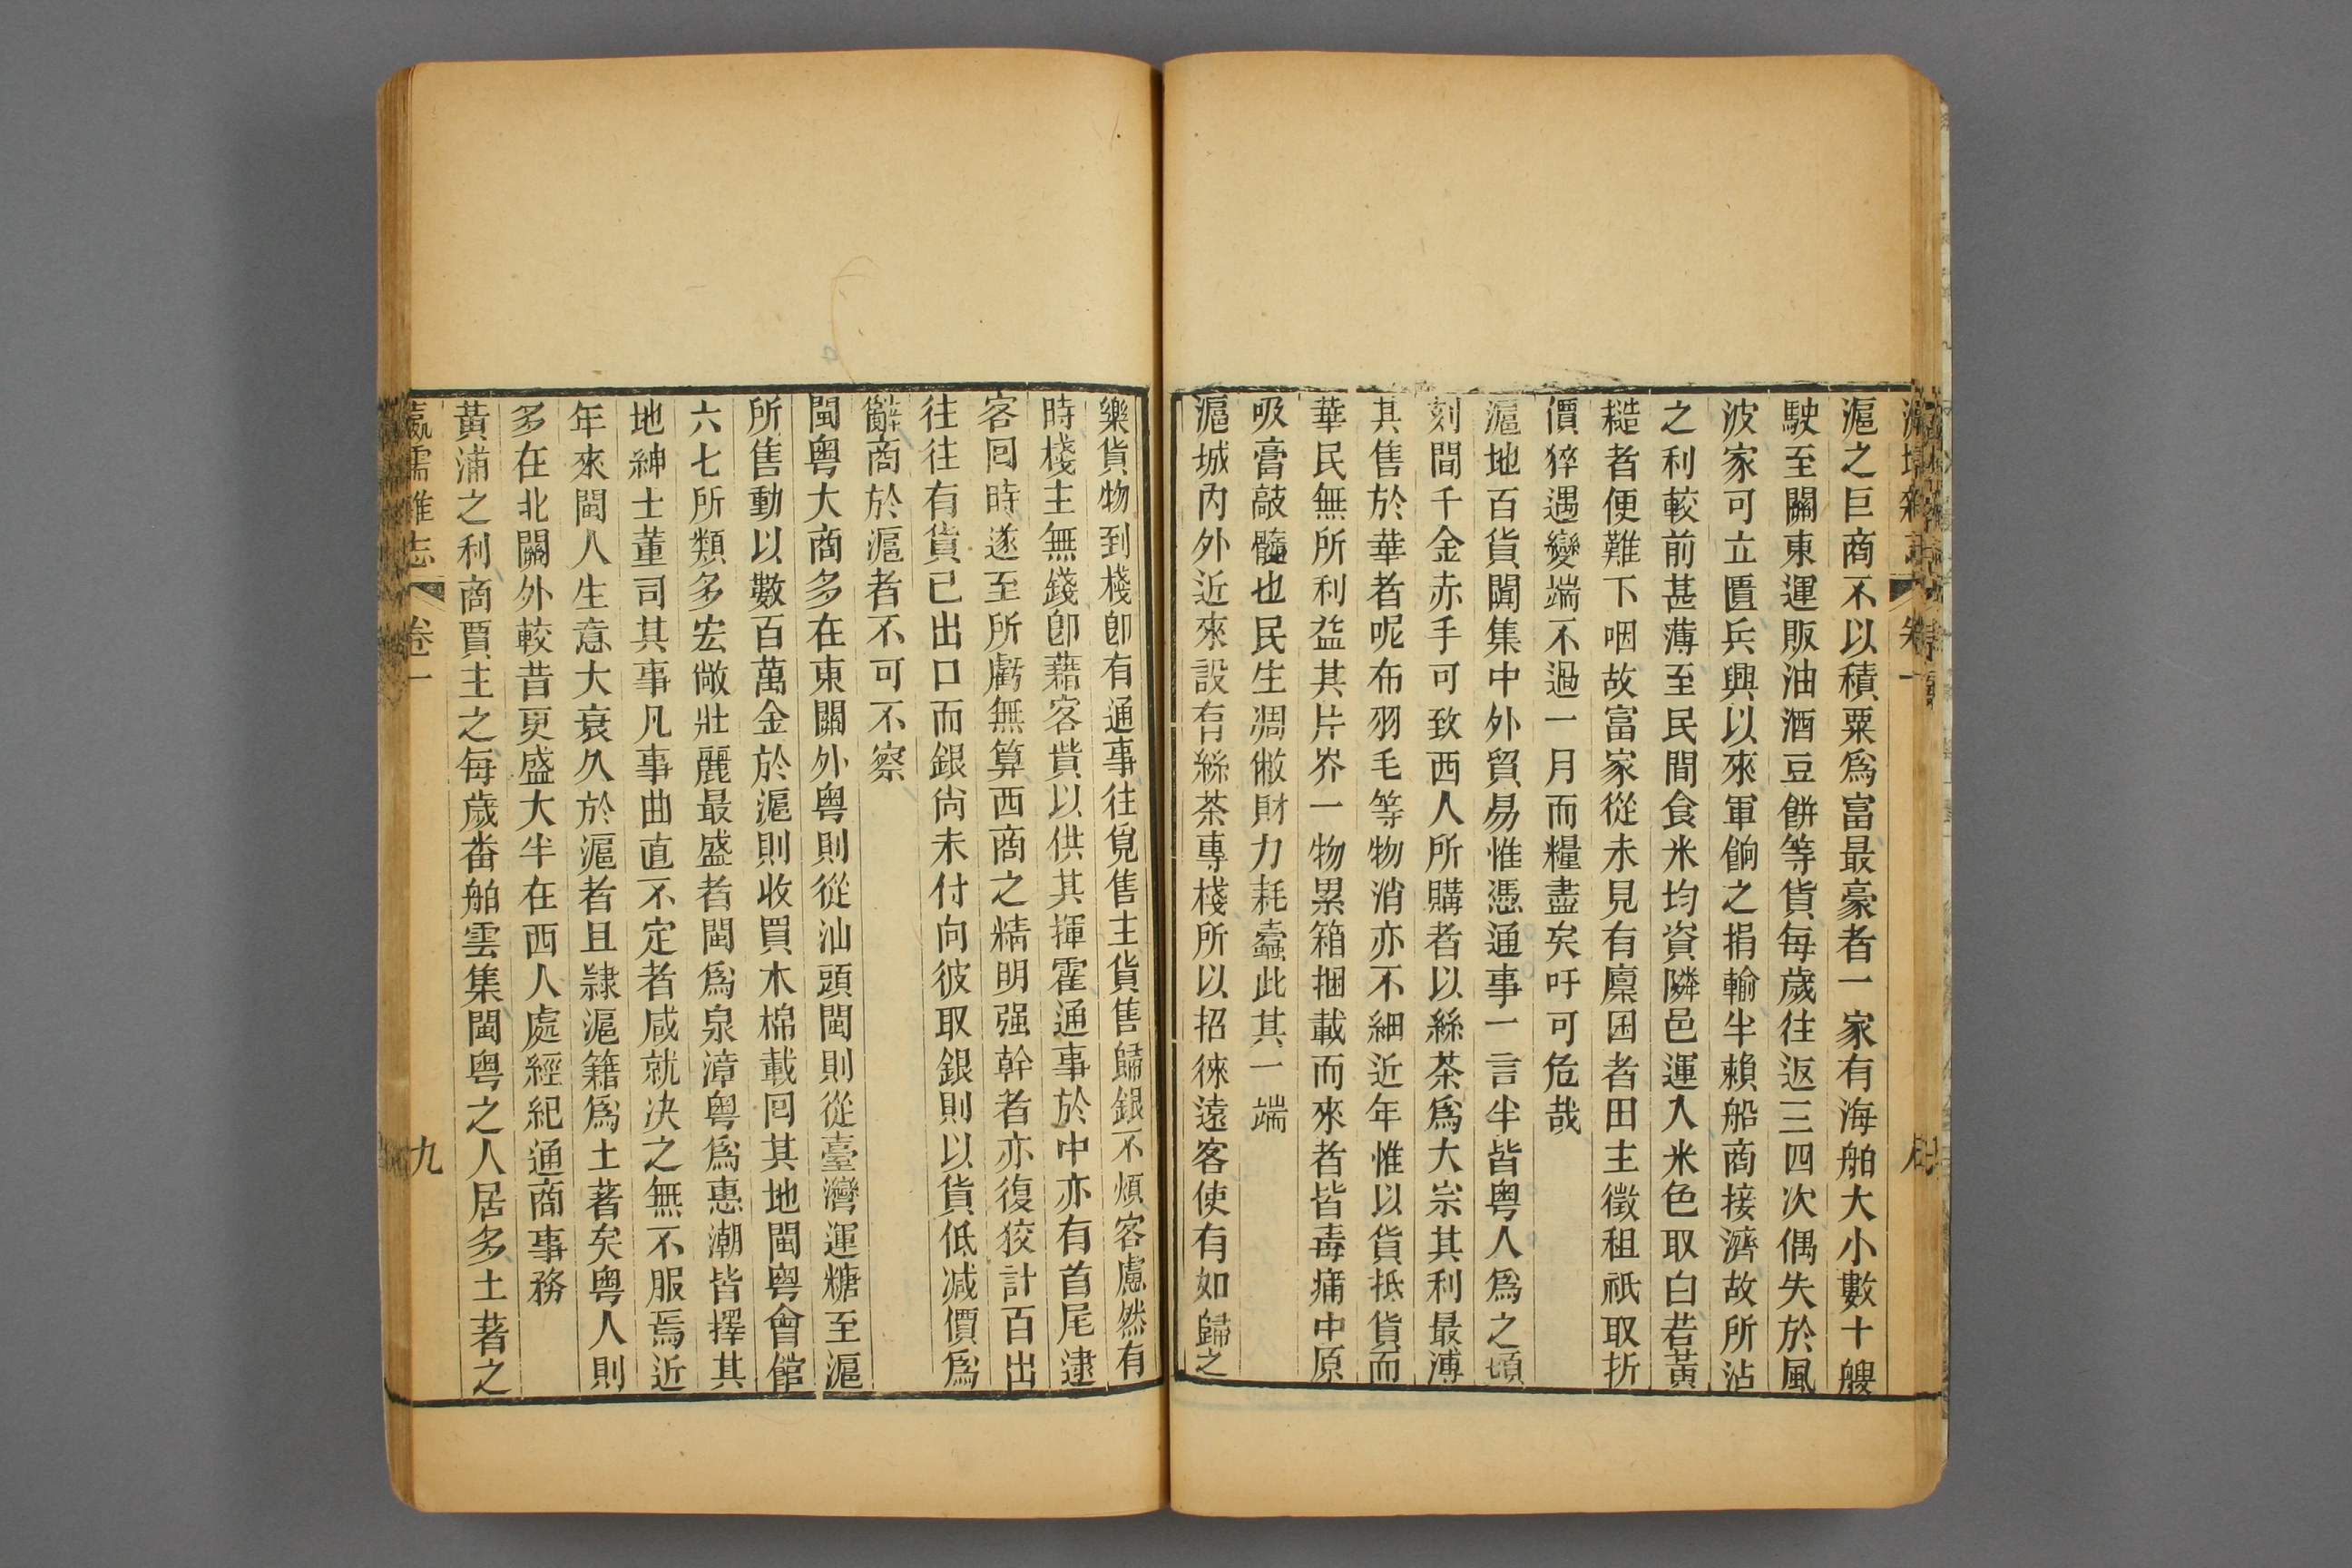 滬之巨商不以積粟爲富最豪者一家有海舶大小數十艘
駛至關東運販油酒豆餅等貨每歲往返三四次偶失於風
波家可立匱兵興以來軍餉之捐輸半賴船商接濟故所沾
之利較前甚薄至民間食米均資隣邑運入米色取白若黃
糙者便難下咽故富家從未見有廪囷者田主徵租祇取折
價猝遇變端不過一月而糧盡矣吁可危哉
滬地百貨闐集中外貿易惟憑通事一言半皆粤人爲之頃
刻間千金赤手可致西人所購者以絲茶爲大宗其利最溥
其售於華者呢布羽毛等物消亦不細近年惟以貨抵貨而
華民無所利益其片芥一物累箱捆載而來者皆毒痡中原
吸膏敲髓也民生凋㡀財力耗蠧此其一端
滬城內外近來設有絲茶專棧所以招徠遠客使有如歸之
樂貨物到棧卽有通事往覓售主貨售歸銀不煩客慮然有
時棧主無錢卽藉客貲以供其揮霍通事於中亦有首尾逮
客囘時遂至所虧無算西商之精明强幹者亦復狡計百出
往往有貨已出口而銀尙未付向彼取銀則以貨低減價爲
辭商於滬者不可不察
閩粤大商多在東關外粤則從汕頭閩則從臺灣運糖至滬
所售動以數百萬金於滬則收買木棉載囘其地閩粤會館
六七所類多宏敞壯麗最盛者閩爲泉漳粤爲惠潮皆擇其
地紳士董司其事凡事曲直不定者咸就决之無不服焉近
年來閩人生意大衰久於滬者且隷滬籍爲土著矣粤人則
多在北關外較昔更盛大半在西人處經紀通商事務
黃浦之利商賈主之每歲畨舶雲集閩粤之人居多土著之
瀛壖雜志 卷一 九